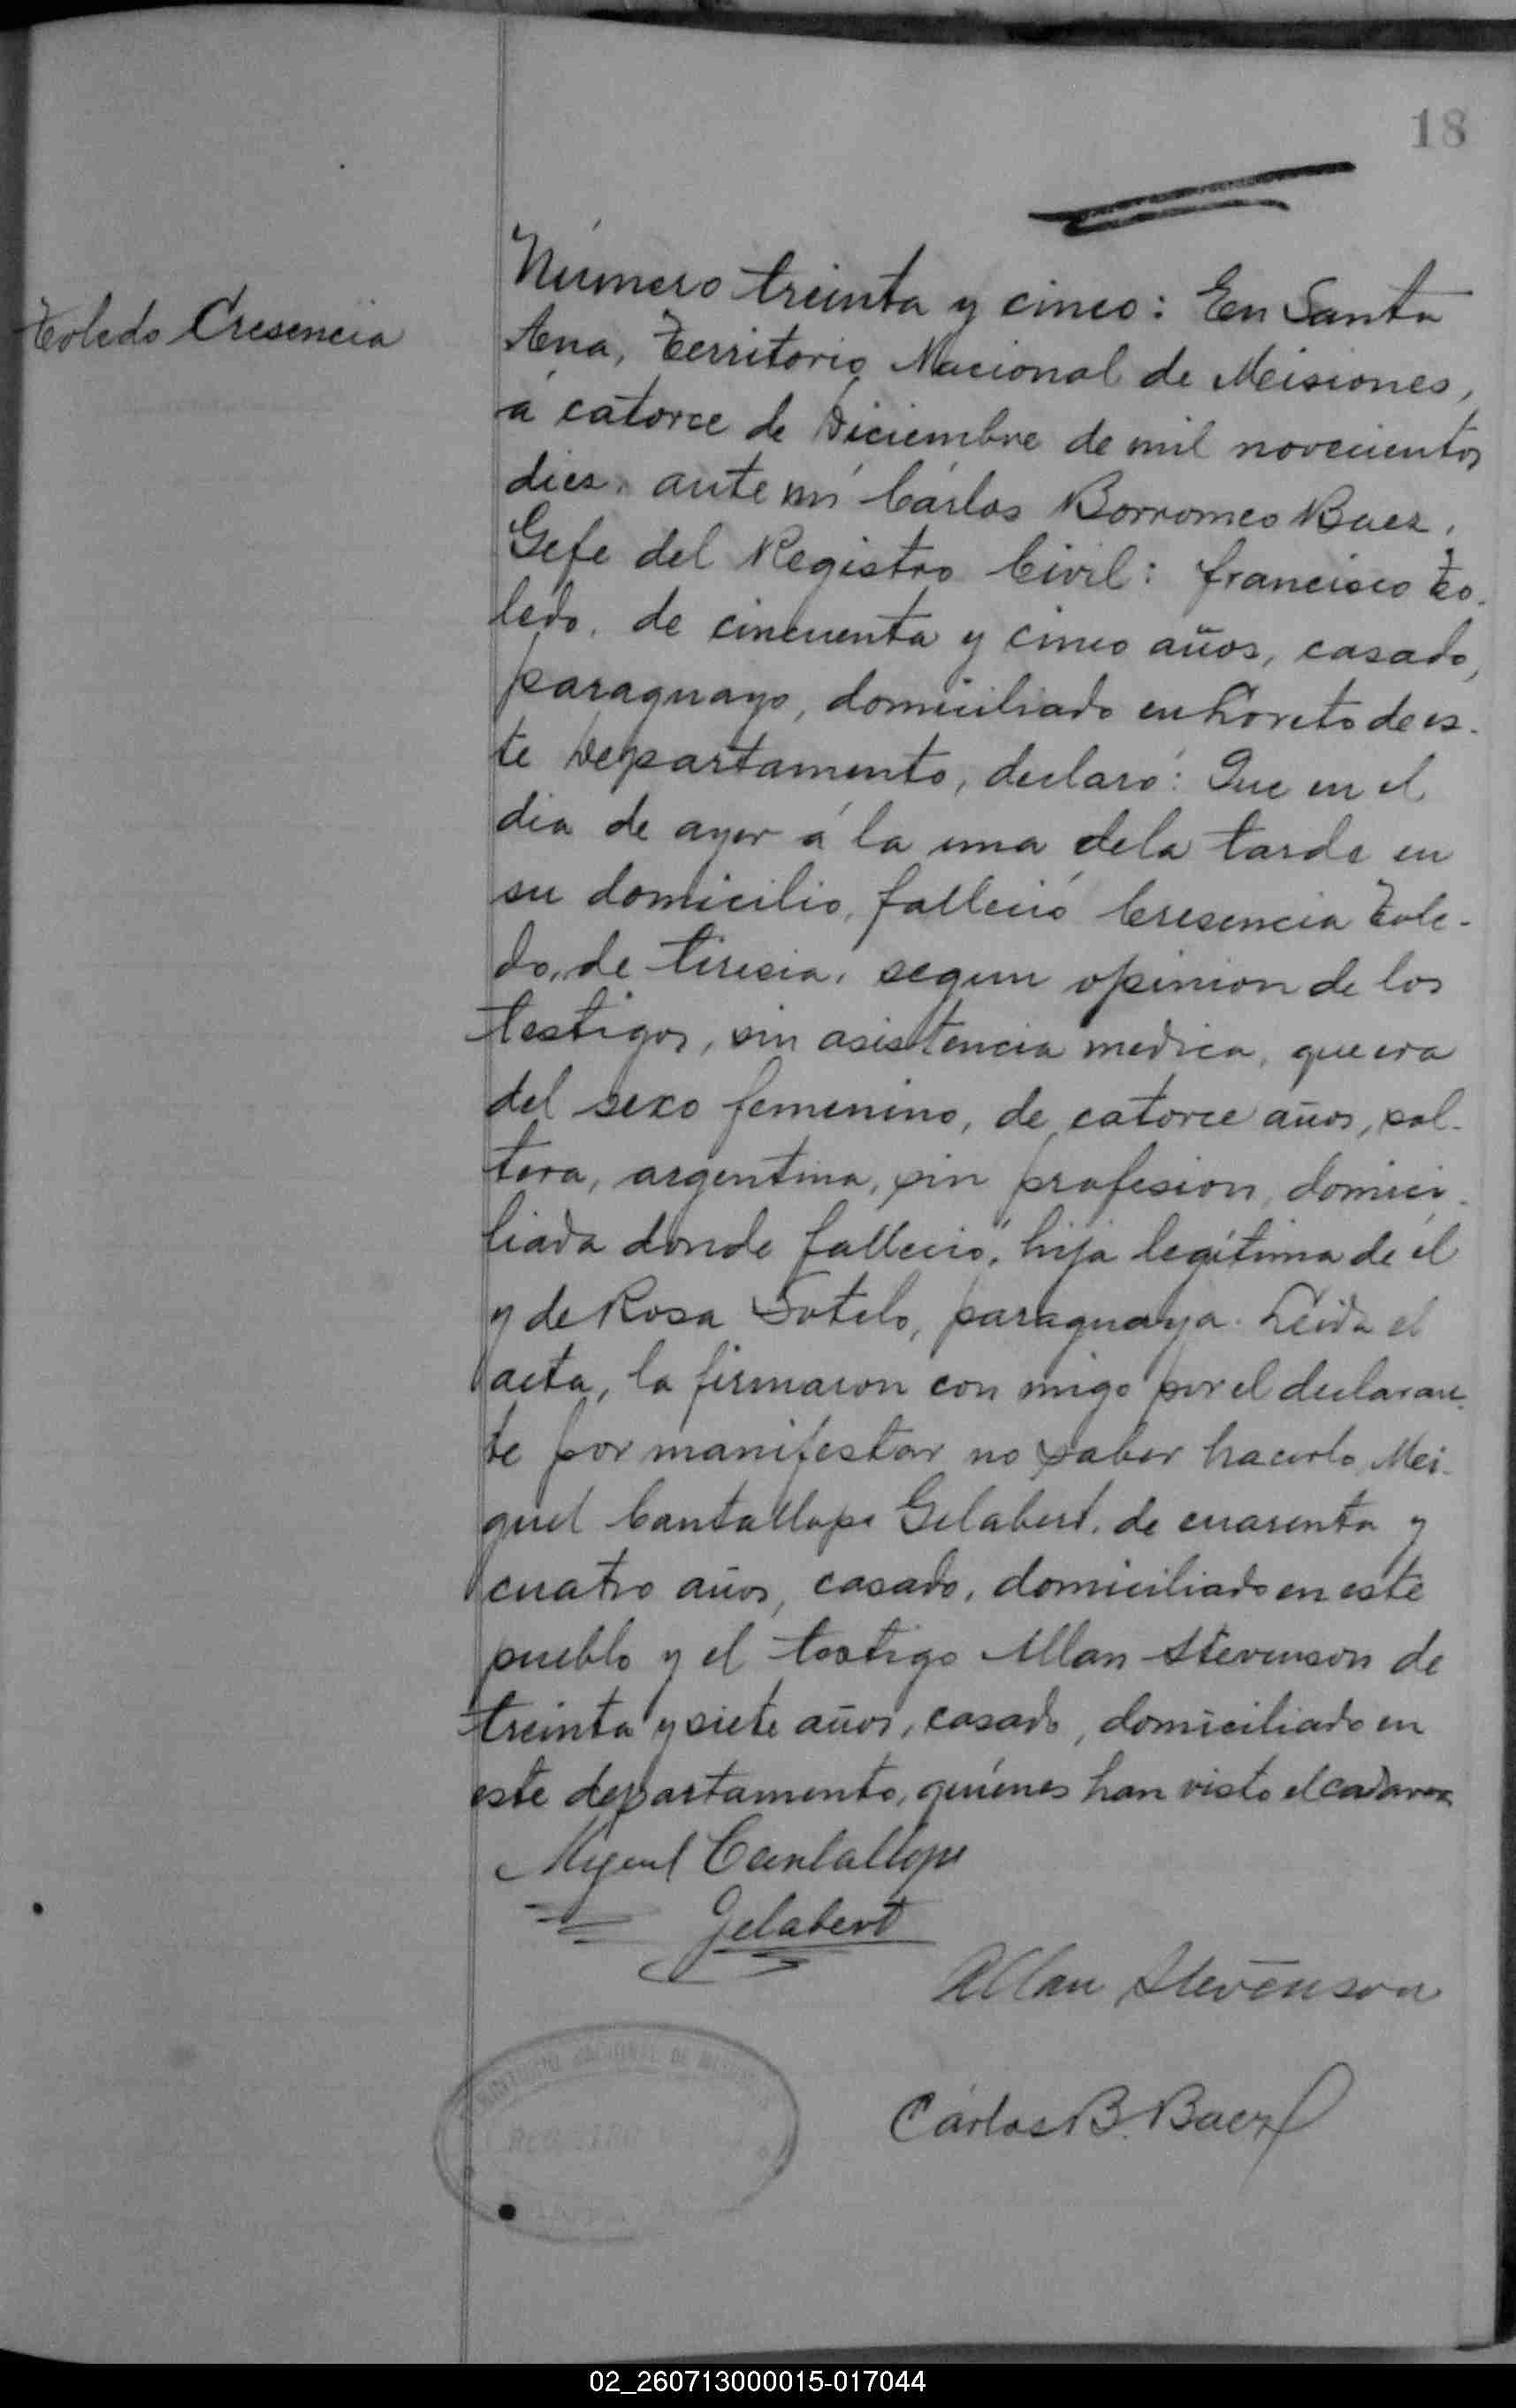 18
Toledo Cresencia
Número treinta y cinco: En Santa
Ana, Territorio Nacional de Misiones,
á catorce de Diciembre de mil novecientos
diez, ante mí Cárlos Borromeo Baez,
Gefe del Registro Civil: Francisco To-
ledo, de cincuenta y cinco años, casado,
paraguayo, domiciliado en Loreto de es-
te Departamento, declaró: Que en el
dia de ayer á la una dela tarde en
su domicilio, falleció Cresencia Tole-
do, de tiricia, segun opinion de los
testigos, sin asistencia medica, que era
del sexo femenino, de catorce años, sol-
tera, argentina, sin profesion, domici-
liada donde falleció, hija legítima de él
y de Rosa Sotelo, paraguaya. Leida el
acta, la firmaron con migo por el declaran-
te por manifestar no saber hacerlo Mi-
guel Cantallops Gelabert, de cuarenta y
cuatro años, casado, domiciliado en este
pueblo y el testigo Allan Stevenson de
treinta y siete años, casado, domiciliado en
este departamento, quienes han visto el cadaver
Miguel Cantallops
Gelabert
Allan Stevenson
Cárlos B. Baez
TERRITORIO NACIONAL DE MISIONES
REGISTRO
02_260713000015-017044